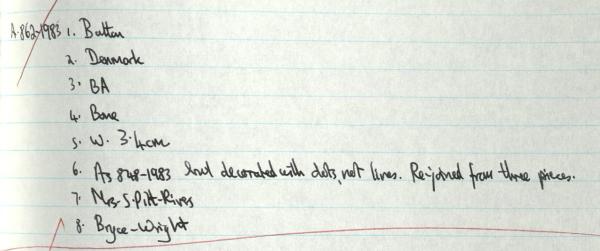 A.862-1983 1. Button
2. Denmark
3. BA
4. Bone
5. W. 3.4cm
6. As 848-1983 but decorated with dots, not lines. Rejoined from three pieces.
7. Mrs. S. Pitt-Rivers
8. Bryce-Wright